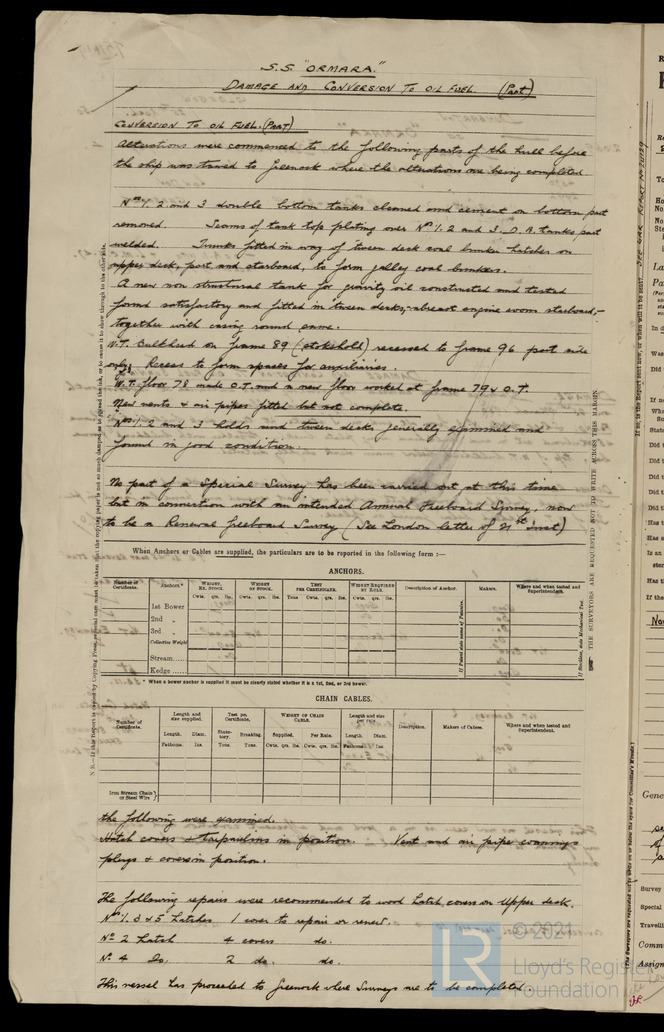 S.S. "ORMARA."
DAMAGE AND CONVERSION TO OIL FUEL. (Part)
CONVERSION TO OIL FUEL. (PART)
Alterations were commenced to the following parts of the hull before
the ship was towed to Greenock where the alterations are being completed.
Nos 1, 2 and 3 double bottom tanks cleaned and cement on bottom part
removed. Seams of tank top plating over Nos 1, 2 and 3. D.B. tanks part
welded. Trunks fitted in way of tween deck coal bunker hatches on
upper deck, port and starboard, to form galley coal bunkers.
A new non structural tank for gravity oil constructed and tested
found satisfactory and fitted in 'tween decks, abreast engine room starboard,
together with casing round same.
W.T. Bulkhead on frame 89 (stokehold) recessed to frame 96 port side
only. Recess to form spaces for auxiliaries.
W.T. floor 78 made O.T. and a new floor worked at frame 79 & O.T.
New vents & air pipes fitted but not complete.
Nos 1, 2 and 3 holds and tween decks generally examined and
found in good condition.
No part of a Special Survey has been carried out at this time
but in connection with an intended Annual Freeboard Survey, now
to be a Renewal Freeboard Survey (See London letter of 21st inst)
When Anchors or Cables are supplied, the particulars are to be reported in the following form :—
ANCHORS.
Number of Certificate. Anchors.* Weight, Ex. Stock. Weight of Stock. Test per Certificate. Weight Required by Rule. Description of Anchor. Makers. Where and when tested and Superintendent.
Cwts. qrs. lbs. Cwts. qrs. lbs. Tons Cwt. qrs. lbs. Cwts. qrs. lbs.
1st Bower
2nd "
3rd "
Collective Weight
Stream
Kedge
* When a bower anchor is supplied it must be clearly stated whether it is a 1st, 2nd, or 3rd bower.
CHAIN CABLES.
Number of Certificate. Length and size supplied. Test per Certificate. Weight of Chain Cable. Length and size per rule. Description. Makers of Cables. Where and when tested and Superintendent.
Length. Diam. Statutory. Breaking. Supplied. Per Rule. Length. Diam.
Fathoms. Ins. Tons. Tons. Cwts. qrs. lbs. Cwts. qrs. lbs. Fathoms. Ins.
Iron Stream Chain or Steel Wire
THE SURVEYORS ARE REQUESTED NOT TO WRITE ACROSS THIS MARGIN
the following were examined.
Hatch covers & tarpaulins in position. Vent and air pipe coamings
plugs & covers in position.
The following repairs were recommended to wood hatch covers on upper deck.
Nos 1, 3 & 5 hatches 1 cover to repair or renew.
No 2 hatch 4 covers do.
No 4 Do. 2 do. do.
This vessel has proceeded to Greenock where Surveys are to be completed.
LR
© 2021
Lloyd's Register
Foundation